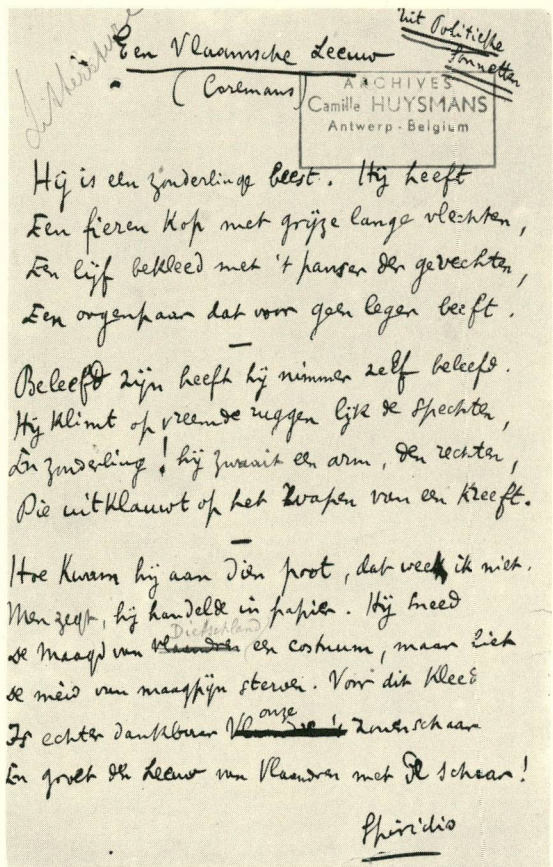 Litherature
Uit Politieke
Sonnetten
Een Vlaamsche Leeuw
(Coremans)
ARCHIVES
Camille HUYSMANS
Antwerp - Belgium
Hij is een zonderlinge beest. Hij heeft
Een fieren kop met grijze lange vlechten,
Een lijf bekleed met 't panser der gevechten,
Een oogenpaar dat voor geen leger beeft.
Beleefd zijn heeft hij nimmer zelf beleefd.
Hij klimt op vreemde ruggen lijk de spechten,
En zonderling! hij zwaait een arm, den rechten,
Die uitklauwt op het wapen van een kreeft.
Hoe kwam hij aan dien poot, dat weet ik niet.
Men zegt, hij handelde in papier. Hij sneed
Dietschland
De maagd van Vlaandren een costuum, maar liet
De meid van maagpijn sterven. Voor dit kleed
onze
Is echter dankbaar Vlaandre's zonenschaar
En groet den Leeuw van Vlaandren met de schaar!
Spiridio